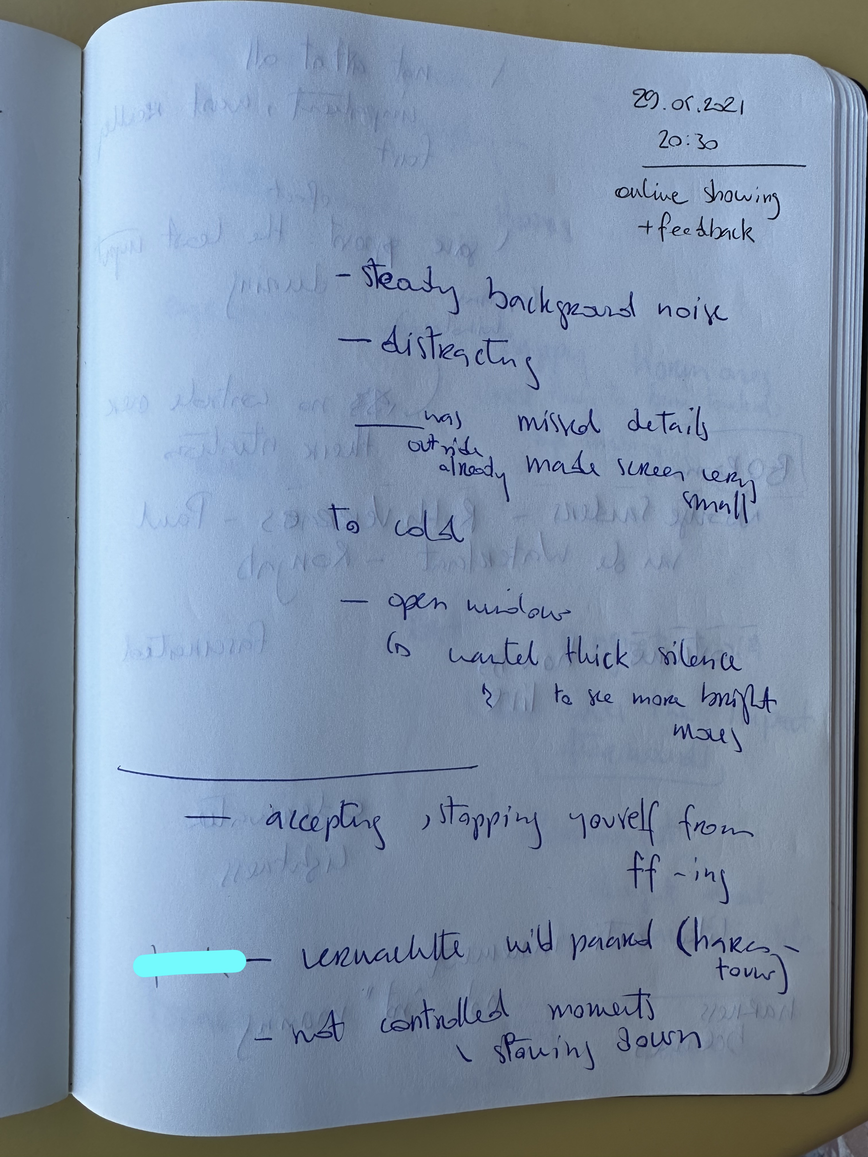 29.05.2021
20:30
online showing
+ feedback
- steady background noise
- distracting
was missed details
outside
already made screen very
small
To cold
- open window
↳ wanted thick silence
to see more bright
moves
- accepting, stopping yourself from
ff-ing
- verwachtte wild paard (harces-
touw)
- not controlled moments
slowing down